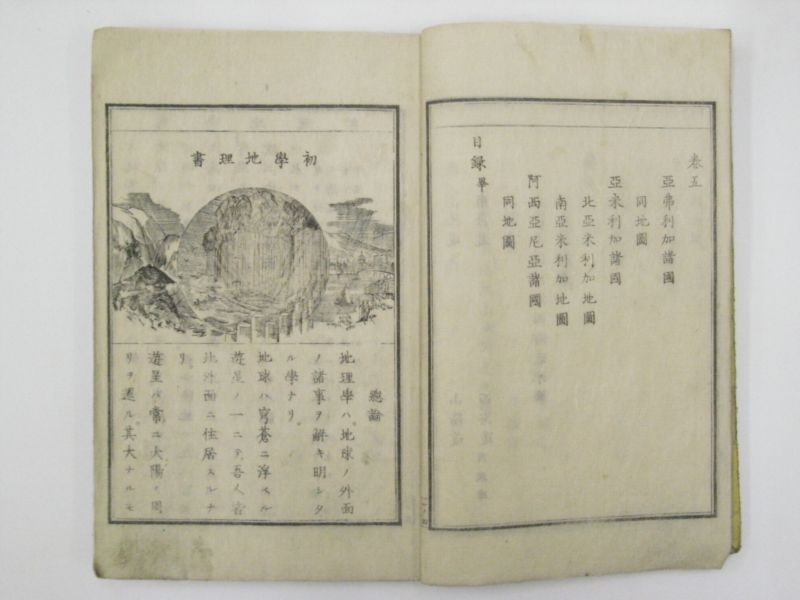 卷五
亞弗利加諸國
同地圖
亞米利加諸國
北亞米利加地圖
南亞米利加地圖
阿西亞尼亞諸國
同地圖
目録畢
初學地理書
總論
地理學ハ地球ノ外面
ノ諸事ヲ解キ明シタ
ル學ナリ
地球ハ穹蒼ニ浮ベル
遊星ノ一ニテ吾人吉
此外面ニ住居スルナ
リ
遊星ハ常ニ大陽ノ周
リヲ運ル其大ナルモ